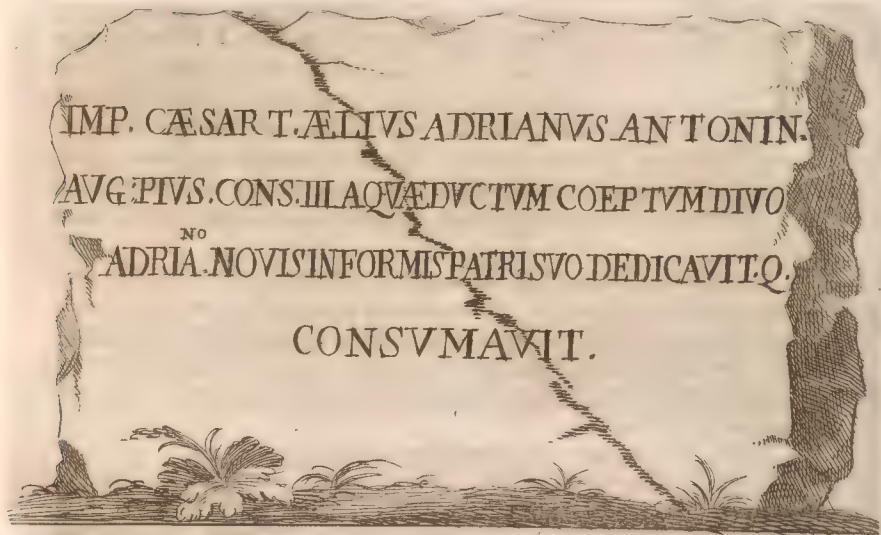 IMP. CÆSAR T. ÆLIVS ADRIANVS ANTONIN.
AVG: PIVS. CONS. III. AQVÆDVCTVM COEPTVM DIVO
NO
ADRIA. NOVIS IN FORMIS PATRI SVO DEDICAVIT. Q.
CONSVMAVIT.